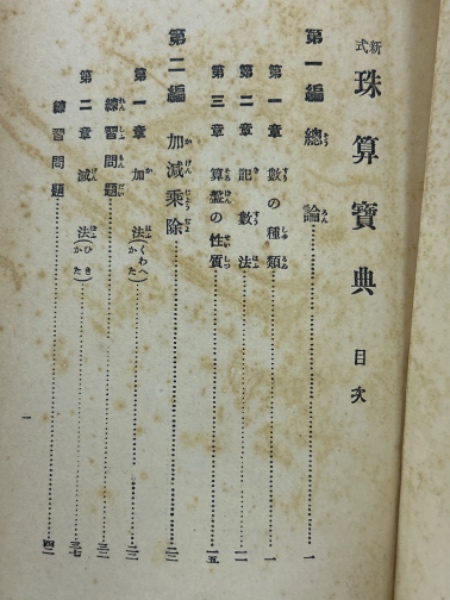 新式 珠算寶典 目次
第一編 總論 一
第一章 數の種類 一
第二章 記數法 一一
第三章 算盤の性質 一五
第二編 加減乘除
第一章 加法(くわへかた)
練習問題
第二章 減法(ひきかた) 三七
練習問題 四二
一